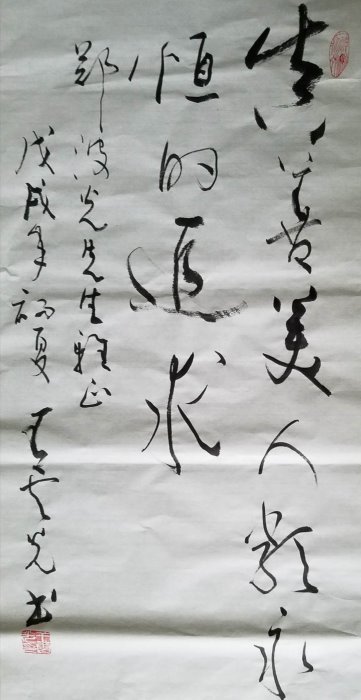 真善美人类永
恒的追求
郑波光先生雅正
戊戌年初夏 王云光书